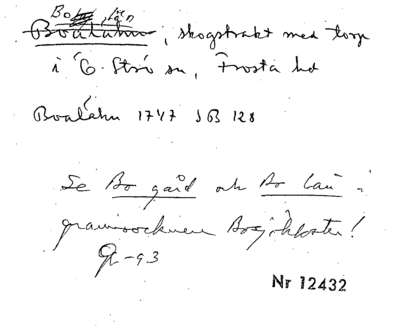 Bo län
Boalähn, skogstrakt med torp
i Ö. Strö sn, Frosta hd
Boalähn 1747 JB 128
Se Bo gård och Bo län i
grannsocknen Bosjökloster!
-93
Nr 12432